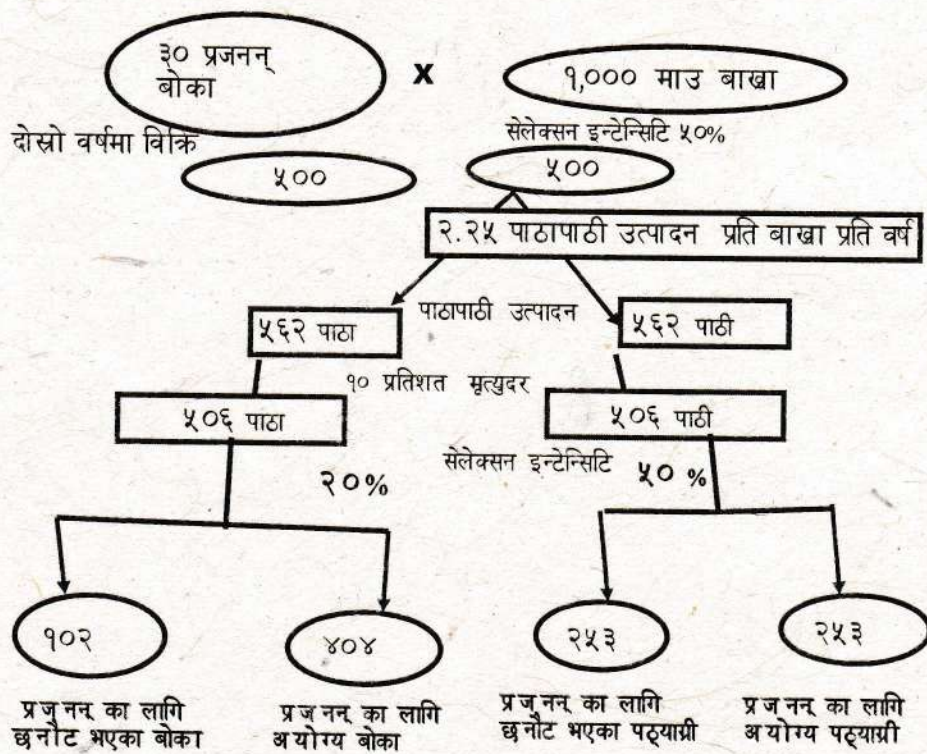 ३० प्रजनन्
बोका
X
१,००० माउ बाख्रा
दोस्रो वर्षमा विक्रि
सेलेक्सन इन्टेन्सिटि ५०%
५००
५००
२.२५ पाठापाठी उत्पादन प्रति बाख्रा प्रति वर्ष
५६२ पाठा
पाठापाठी उत्पादन
५६२ पाठी
१० प्रतिशत मृत्युदर
५०६ पाठा
५०६ पाठी
सेलेक्सन इन्टेन्सिटि
२०%
५० %
१०२
४०४
२५३
२५३
प्रजनन् का लागि
छनौट भएका बोका
प्रजनन् का लागि
अयोग्य बोका
प्रजनन् का लागि
छनौट भएका पठ्याग्री
प्रजनन् का लागि
अयोग्य पठ्याग्री